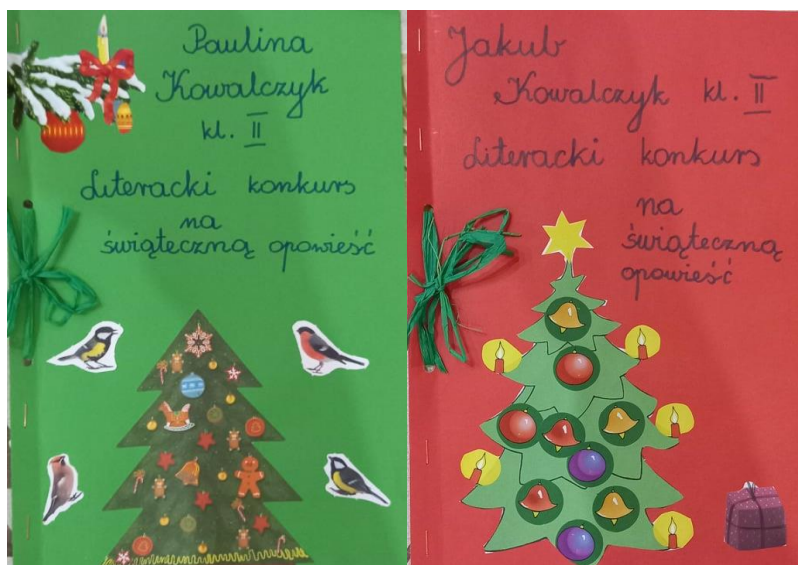 Paulina
Kowalczyk
kl. II
Literacki konkurs
na
świąteczną opowieść
Jakub
Kowalczyk kl. II
Literacki konkurs
na
świąteczną
opowieść